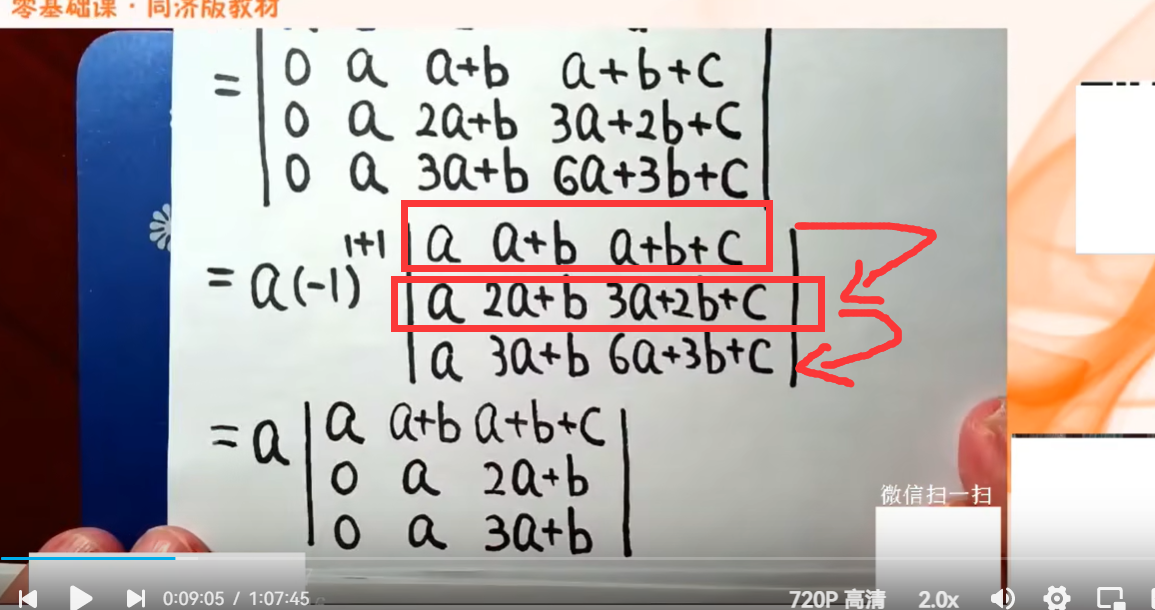 零基础课·同济版教材
= | 0 a a+b a+b+c |
| 0 a 2a+b 3a+2b+c |
| 0 a 3a+b 6a+3b+c |
= a(-1)^{1+1} | a a+b a+b+c |
| a 2a+b 3a+2b+c |
| a 3a+b 6a+3b+c |
= a | a a+b a+b+c |
| 0 a 2a+b |
| 0 a 3a+b |
微信扫一扫
0:09:05 / 1:07:45
720P 高清
2.0x